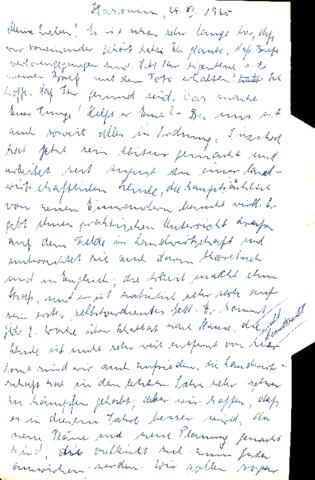 Meine Lieben! Es ist schon sehr lange her, daß
wir voneinander gehört haben. Ich glaube, daß Briefe
verlorengegangen sind. Habt Ihr eigentlich
meinen Brief mit dem Foto erhalten? Ich
hoffe, daß Ihr gesund seid, was macht
Euer Junge? Bei uns ist
auch soweit alles in Ordnung.
hat jetzt sein Abitur gemacht und
arbeitet seit August an einer land-
wirtschaftlichen Schule, die hauptsächlich
von neuen Einwanderern besucht wird. Er
gibt ihnen praktischen Unterricht draußen
auf dem Felde in Landwirtschaft und
unterrichtet sie auch darin theoretisch
und in Englisch, die Arbeit macht ihm
Spaß, und er ist natürlich sehr stolz auf
sein erstes selbstverdientes Geld. Er kommt
jede 2. Woche über Schabbat nach Hause, die
Schule ist nicht sehr weit entfernt von hier
Sonst sind wir auch zufrieden, die Landwirt-
schaft hat in den letzten Jahren sehr schwer
zu kämpfen gehabt, aber wir hoffen, daß
es in diesem Jahre besser wird, da
neue Pläne und neue Planung gemacht
sind, die vielleicht sich zum guten
auswirken werden. Wir sollen sogar